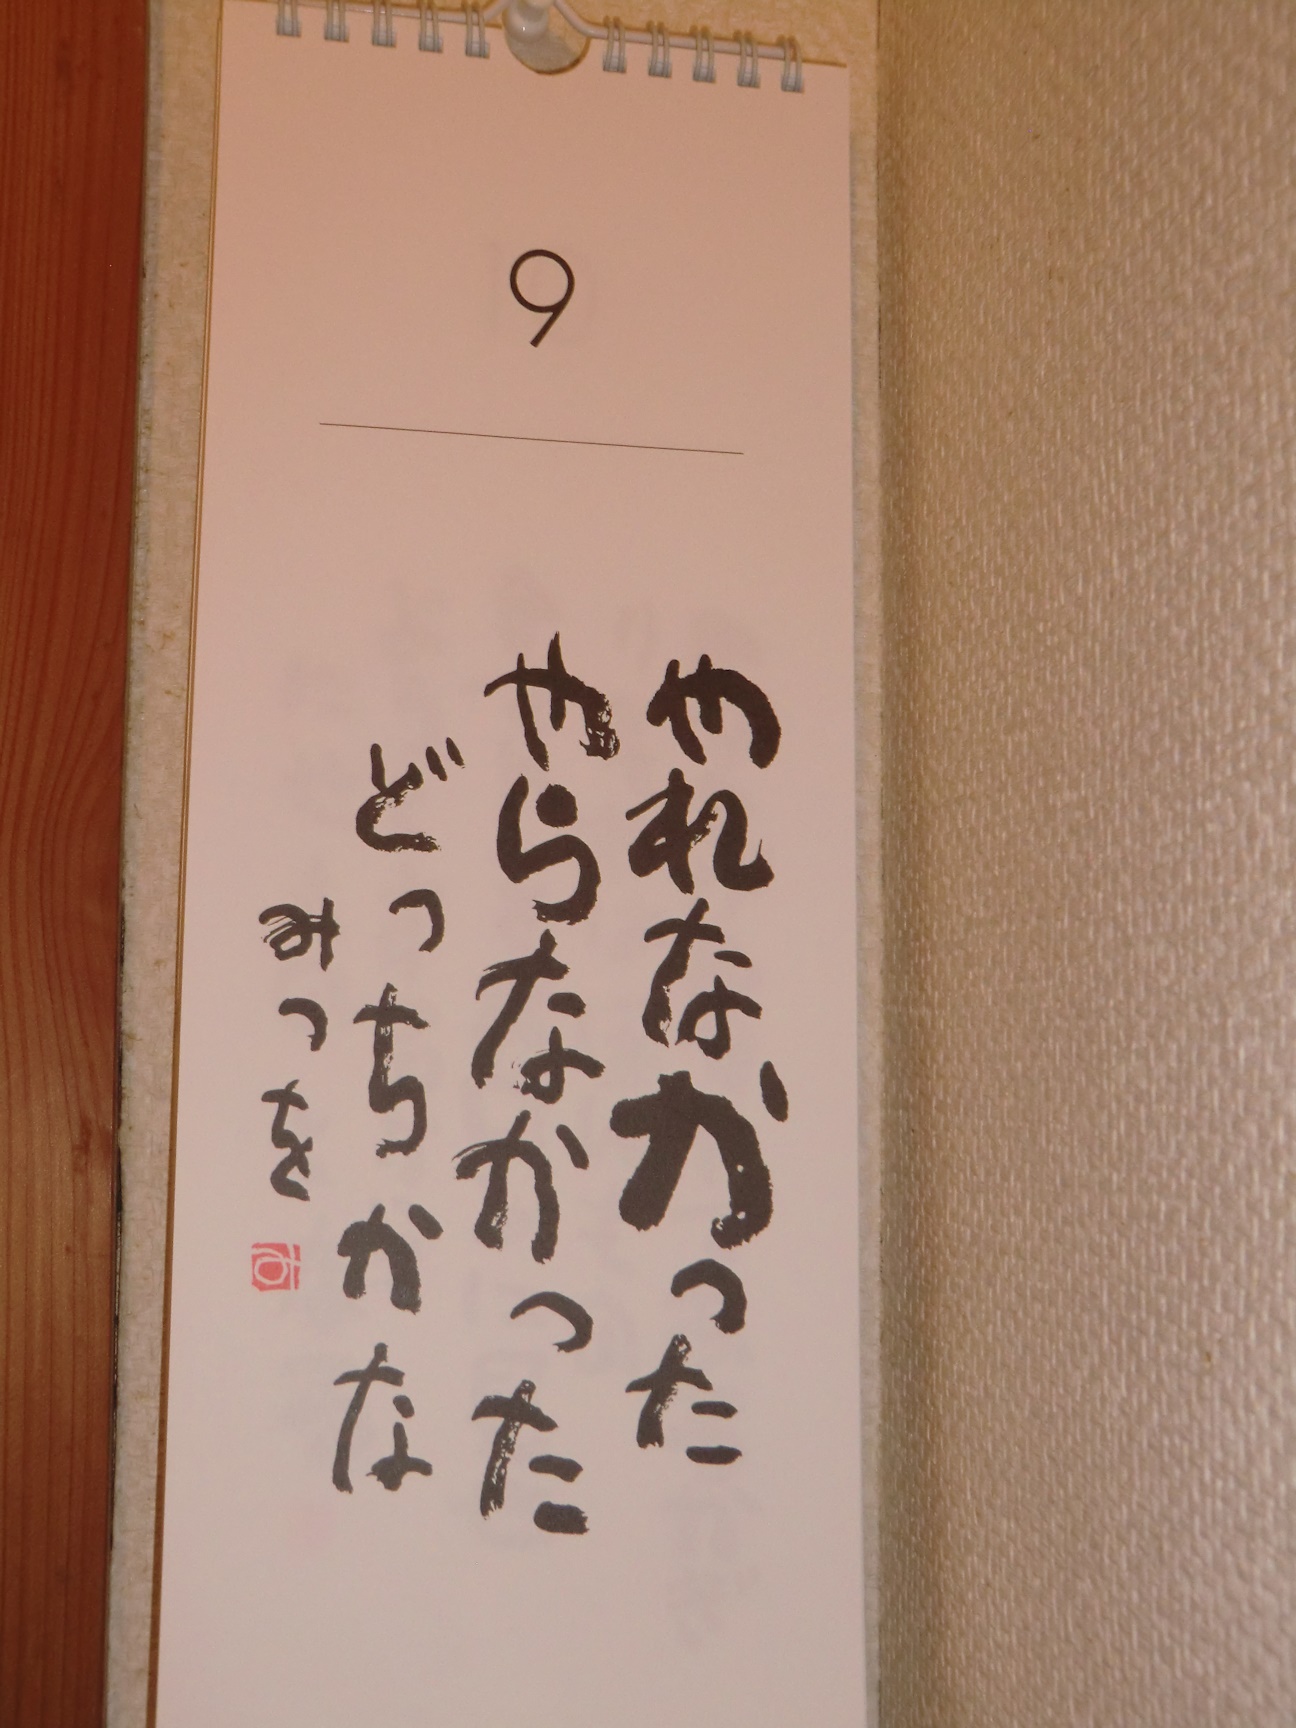 9
やれなかった
やらなかった
どっちかな
みつを
み